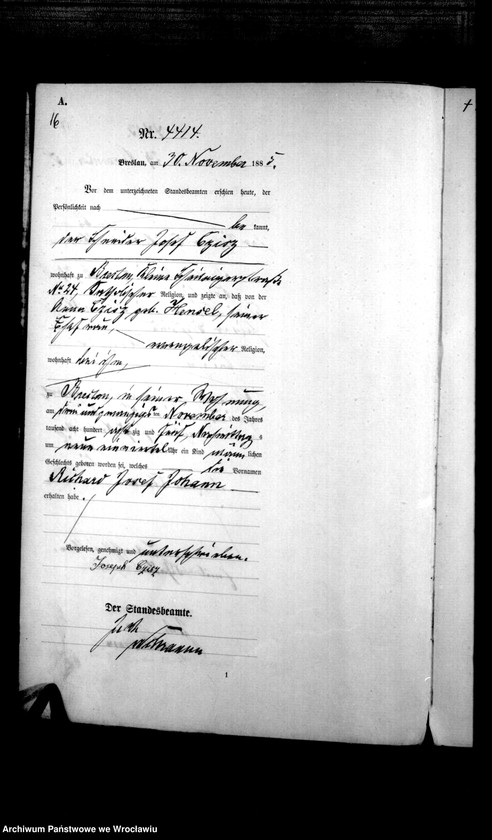 A.
16
Nr. 4414.
Breslau, am 30. November 1885.
Vor dem unterzeichneten Standesbeamten erschien heute, der
Persönlichkeit nach
be kannt,
der Schneider Josef
wohnhaft zu Breslau, Kleine
No 24, katholischer Religion, und zeigte an, daß von der
Anna geb. Hensel, seiner
Ehefrau,
evangelischer Religion,
wohnhaft bei ihm,
zu Breslau, in seiner Wohnung,
am neunundzwanzigsten November des Jahres
tausend acht hundert achtzig und fünf, Nachmittags
um neun ein viertel Uhr ein Kind männlichen
Geschlechts geboren worden sei, welches die Vornamen
Richard Josef Johann
erhalten habe.
Vorgelesen, genehmigt und unterschrieben.
Joseph
Der Standesbeamte.
1
Archiwum Państwowe we Wrocławiu